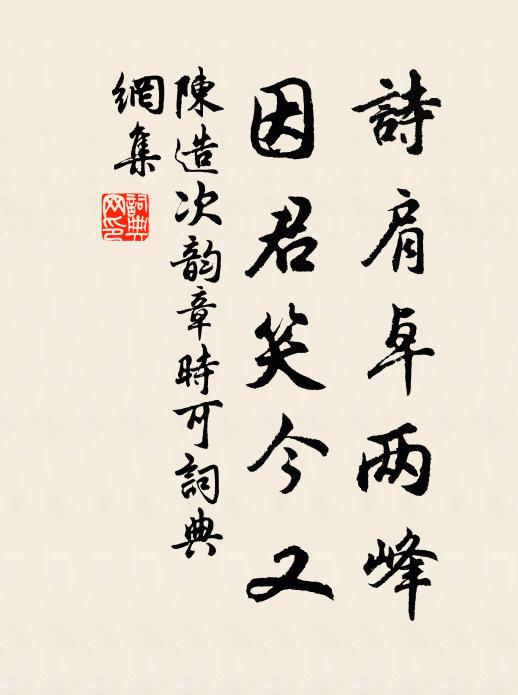 詩肩卓两峰
因君笑今又
陳造次韵章時可詞典
網集
詞典
网印